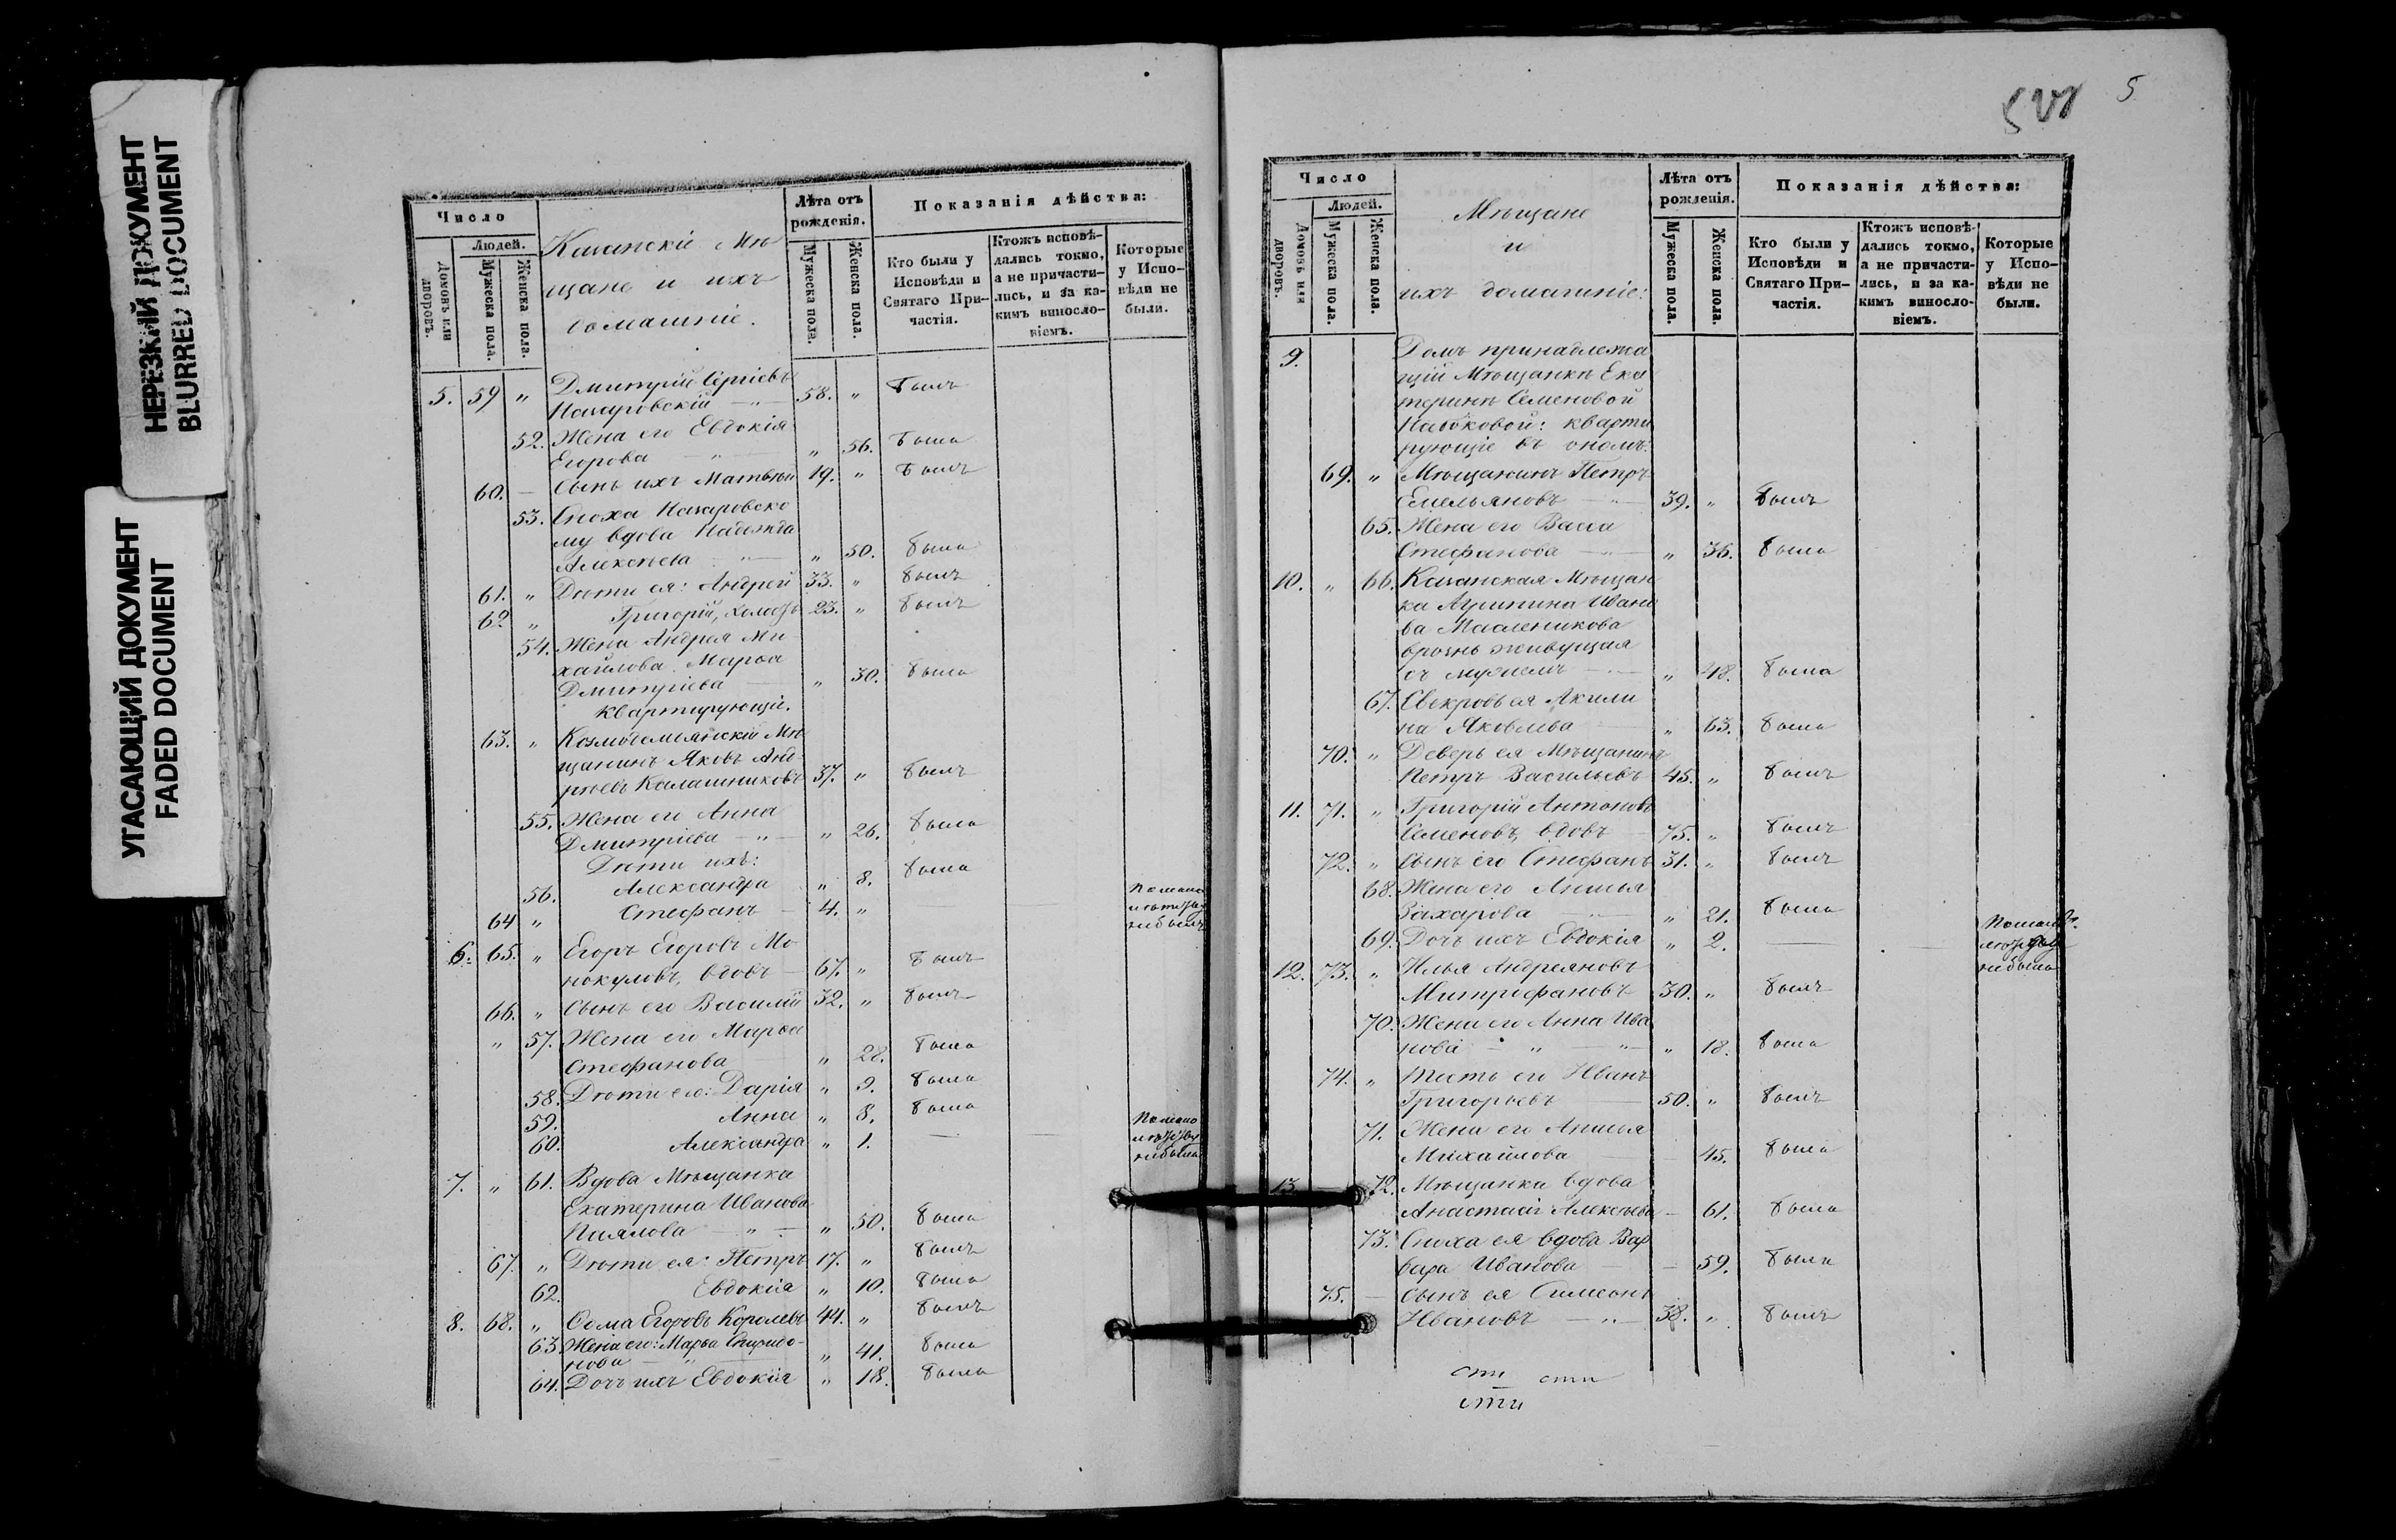 НЕРЕЗКИЙ ДОКУМЕНТ
BLURRED DOCUMENT
УГАСАЮЩИЙ ДОКУМЕНТ
FADED DOCUMENT
Число
Людей.
Домовъ или дворовъ.
Мужеска пола.
Женска пола.
Казанскіе Мѣ
щане и ихъ
домашніе.
Лѣта отъ рожденія.
Мужеска пола.
Женска пола.
Показанія дѣйства:
Кто были у Исповѣди и Святаго При-частія.
Ктожъ исповѣ-дались токмо, а не причасти-лись, и за ка-кимъ винослo-віемъ.
Которые у Испо-вѣди не были.
5. 59 " Дмитрій Сергіевъ
58. " былъ
52. Жена его Евдокія
Егорова " 56. была
60. — Сынъ ихъ Матвѣй 19. " былъ
53. Сноха
му вдова Надежда
Алексѣева — " — " 50. была
61. " Дѣти ея: Андрей 33. " былъ
62 " Григорій, холостъ 23. " былъ
54. Жена Андрея Ми
хайлова Марѳа
Дмитріева — " 30. была
квартирующіе.
63. " Козмодемьянскій Мѣ
щанинъ Яковъ Анд
реевъ Калашниковъ 37. " былъ
55. Жена его Анна
Дмитріева — " — " 26. была
Дѣти ихъ:
56. Александра " 8. была
64 " Стефанъ — 4. " —
6. 65. " Егоръ Егоровъ Мо
нокуловъ, вдовъ — 67. " былъ
66. " Сынъ его Василій 32. " былъ
" 57. Жена его Марѳа
Стефанова " 28. была
58. Дѣти его: Дарія " 9. была
59. Анна " 8. была
60. Александра " 1. —
7. " 61. Вдова Мѣщанка
Екатерина Иванова
" 50. была
67. " Дѣти ея: Петръ 17. " былъ
62. Евдокія " 10. была
8. 68. " Ѳома Егоровъ Королевъ 44. " былъ
63. Жена его: Марѳа Спиридо-
нова — " 41. была
64. Дочь ихъ Евдокія " 18. была
5
Число
Людей.
Домовъ или дворовъ.
Мужеска пола.
Женска пола.
Мѣщане
и
ихъ домашніе:
Лѣта отъ рожденія.
Мужеска пола.
Женска пола.
Показанія дѣйства:
Кто были у Исповѣди и Святаго При-частія.
Ктожъ исповѣ-дались токмо, а не причасти-лись, и за ка-кимъ винослo-віемъ.
Которые у Испо-вѣди не были.
9. Домъ принадлежа
щій Мѣщанкѣ Ека
теринѣ Семеновой
Набоковой: кварти
рующіе въ ономъ:
69. " Мѣщанинъ Петръ
Емельяновъ — 39. " былъ
65. Жена его Васса
Стефанова — " 36. была
10. " 66. Казанская Мѣщан
ка Агрипина Ивано
ва Масленикова
врознь живущая
съ мужемъ — " 48. была
67. Свекровь ея Акили
на Яковлева " 63. была
70. " Деверь ея Мѣщанинъ
Петръ Васильевъ 45. " былъ
11. 71. " Григорій Антоновъ
Семеновъ, вдовъ — 75. " былъ
72. " Сынъ его Стефанъ 31. " былъ
68. Жена его Анисья
Захарова " 21. была
69. Дочь ихъ Евдокія " 2. —
12. 73. " Илья Андреяновъ
Митрофановъ 30. " былъ
70. Жена его Анна Ива
нова — " — " 18. была
74. " Тесть его Иванъ
Григорьевъ 50. " былъ
71. Жена его Анисья
Михайлова — 45. была
13. 72. Мѣщанка вдова
Анастасія Алексѣева — 61. была
73. Сноха ея вдова Вар
вара Иванова — 59. была
75. — Сынъ ея Симеонъ
Ивановъ — " — 38. " былъ